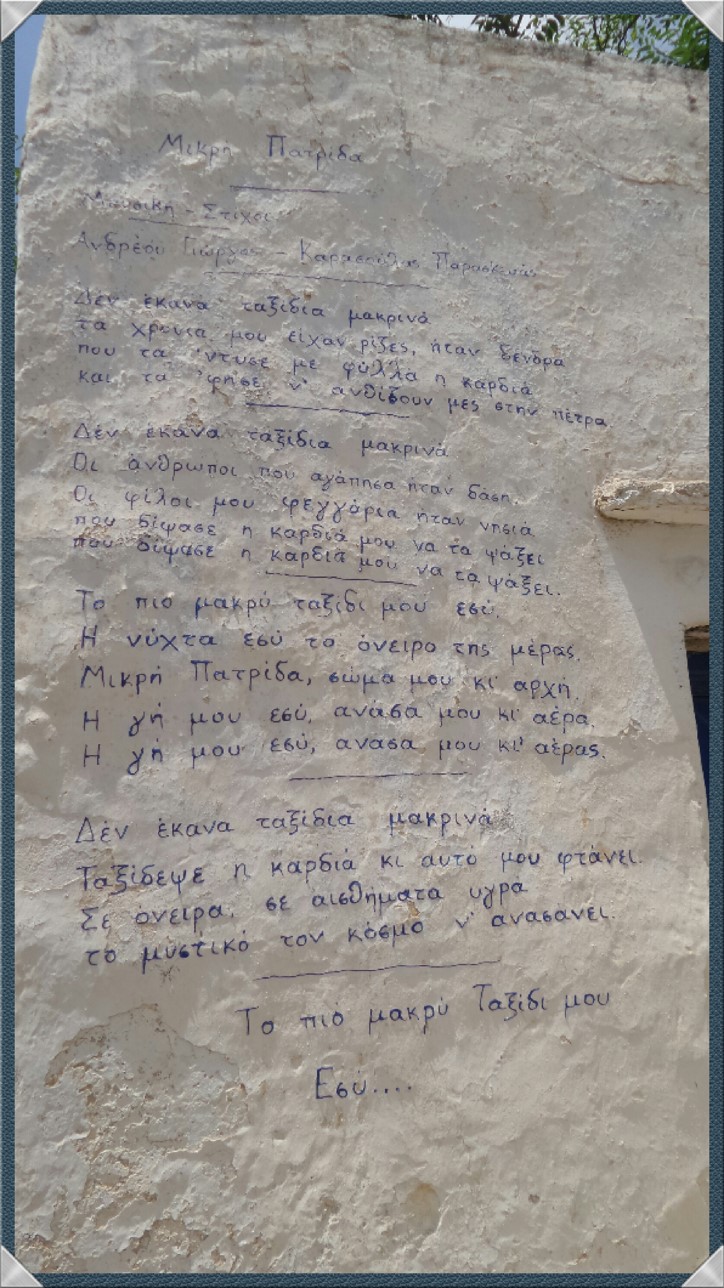 Μικρή Πατρίδα
Μουσική - Στίχοι
Ανδρέου Γιώργος - Καρασούλος Παρασκευάς
Δέν έκανα ταξίδια μακρινά
τα χρόνια μου είχαν ρίζες, ήταν δένδρα
που τα 'ντυσε με φύλλα η καρδιά
και τα 'φησε ν' ανθίσουν μες στην πέτρα
Δέν έκανα ταξίδια μακρινά
Οι άνθρωποι που αγάπησα ήταν δάση.
Οι φίλοι μου φεγγάρια ήταν νησιά
που δίψασε η καρδιά μου να τα ψάξει
που δίψασε η καρδιά μου να τα ψάξει.
Το πιο μακρύ ταξίδι μου εσύ.
Η νύχτα εσύ το όνειρο της μέρας.
Μικρή Πατρίδα, σώμα μου κι' αρχή.
Η γή μου εσύ, ανάσα μου κι' αέρα.
Η γή μου εσύ, ανασα μου κι' αέρας.
Δέν έκανα ταξίδια μακρινά
Ταξίδεψε η καρδιά κι αυτό μου φτάνει.
Σε όνειρα, σε αισθήματα υγρά
το μυστικό τον κόσμο ν' ανασάνει.
Το πιό μακρύ Ταξίδι μου
Εσύ....